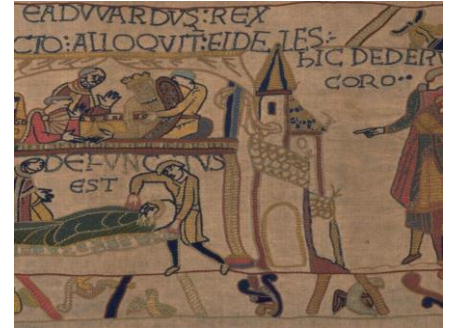 EADVVARDVS:REX
CTO:ALLOQVIT:FIDELES:
HIC DEDERV
CORO
DEFVNCTVS
EST